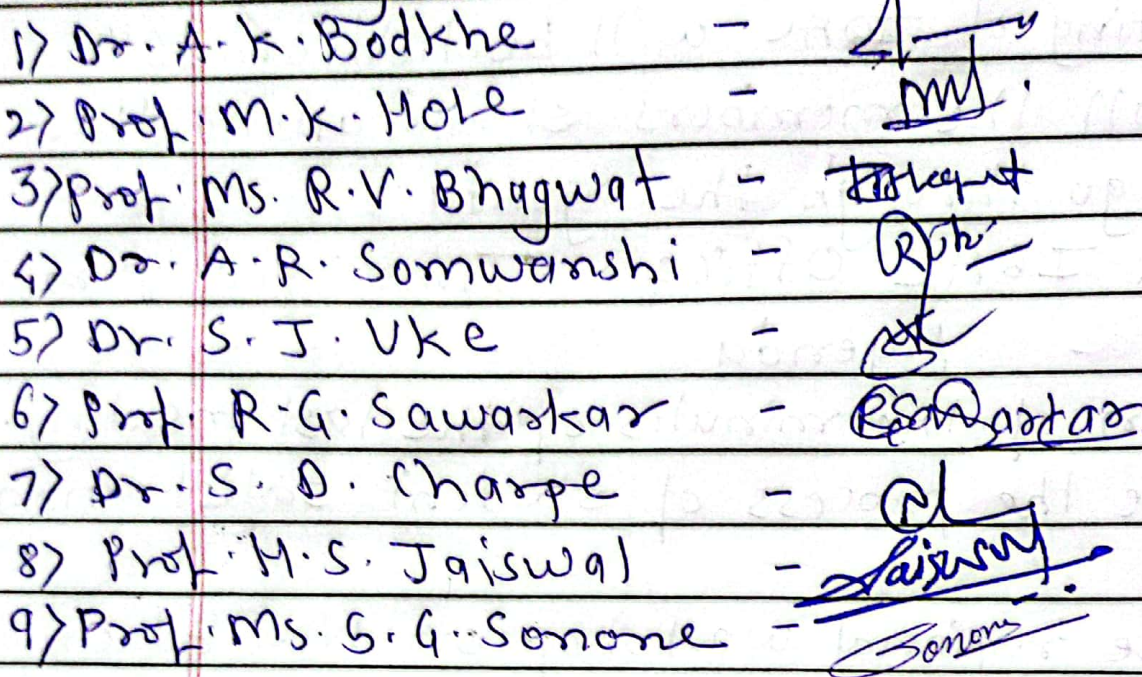 1) Dr. A. K. Bodkhe -
2) Prof. M. K. Hole -
3) Prof. Ms. R. V. Bhagwat -
4) Dr. A. R. Somwanshi -
5) Dr. S. J. Uke -
6) Prof. R. G. Sawarkar - RSawarkar
7) Dr. S. D. Charpe -
8) Prof. H. S. Jaiswal - Jaiswal
9) Prof. Ms. S. G. Sonone - Sonone